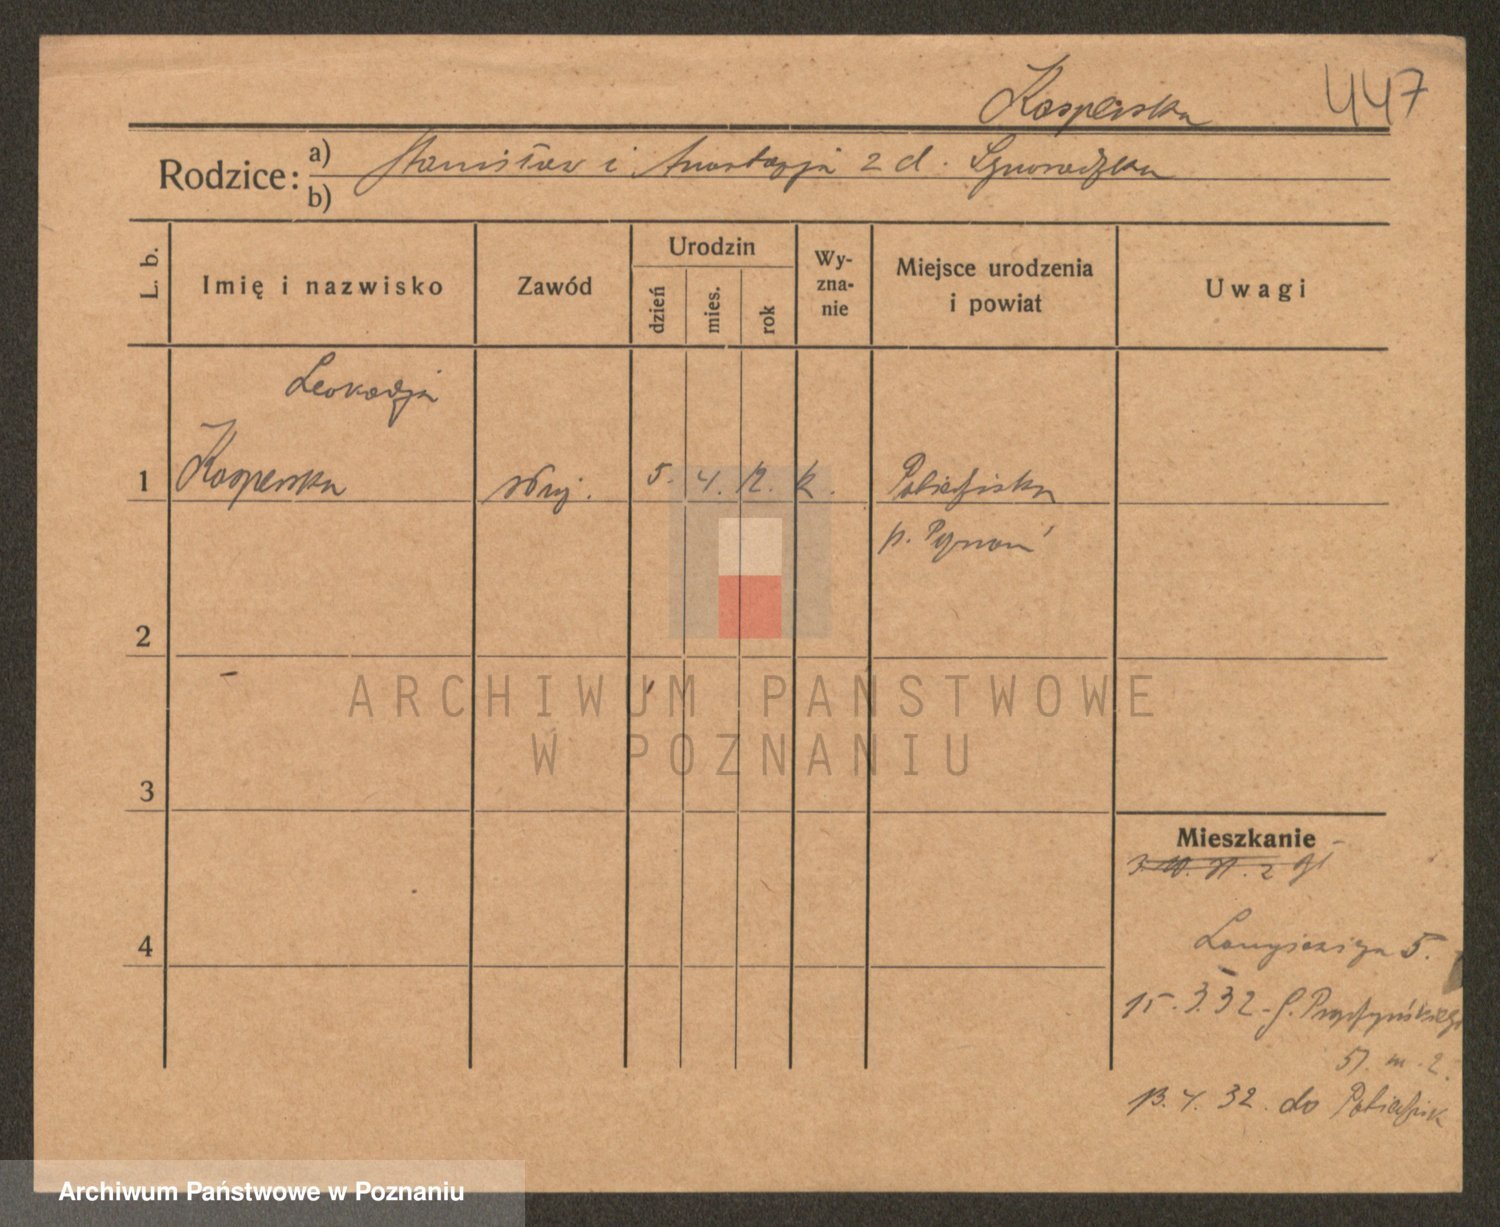 Kasperska 447
Rodzice: a) Stanisław i Anastazja z d.
b)
L. b. Imię i nazwisko Zawód Urodzin dzień mies. rok Wy-zna-nie Miejsce urodzenia i powiat Uwagi
Leokadja
1 Kasperska 5. 4. 12. k. Pobiedziska
p. Poznań
2
3
Mieszkanie
4
5.
15. 3. 32 - G. Prądzyńskiego
51. m. 2.
13. 4. 32. do Pobiedzisk
ARCHIWUM PAŃSTWOWE
W POZNANIU
Archiwum Państwowe w Poznaniu